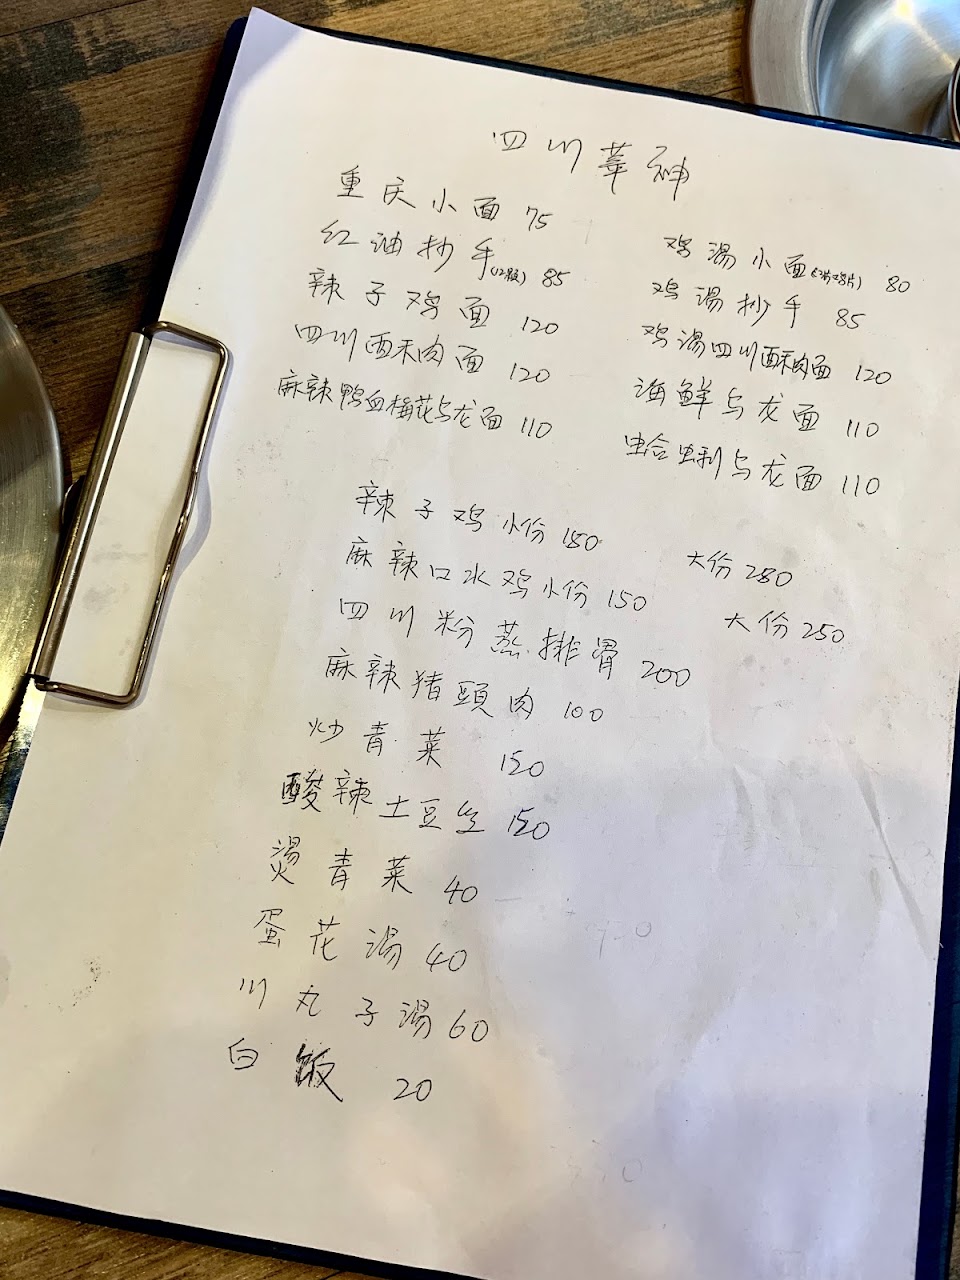 四川莘神
重庆小面 75
红油抄手(12顆) 85
辣子鸡面 120
四川酥肉面 120
麻辣鸭血梅花乌龙面 110
鸡湯小面 80
鸡湯抄手 85
鸡湯四川酥肉面 120
海鮮乌龙面 110
蛤蜊乌龙面 110
辣子鸡小份 150 大份 280
麻辣口水鸡小份 150 大份 250
四川粉蒸排骨 200
麻辣猪頭肉 100
炒青菜 150
酸辣土豆丝 150
燙青菜 40
蛋花湯 40
川丸子湯 60
白飯 20